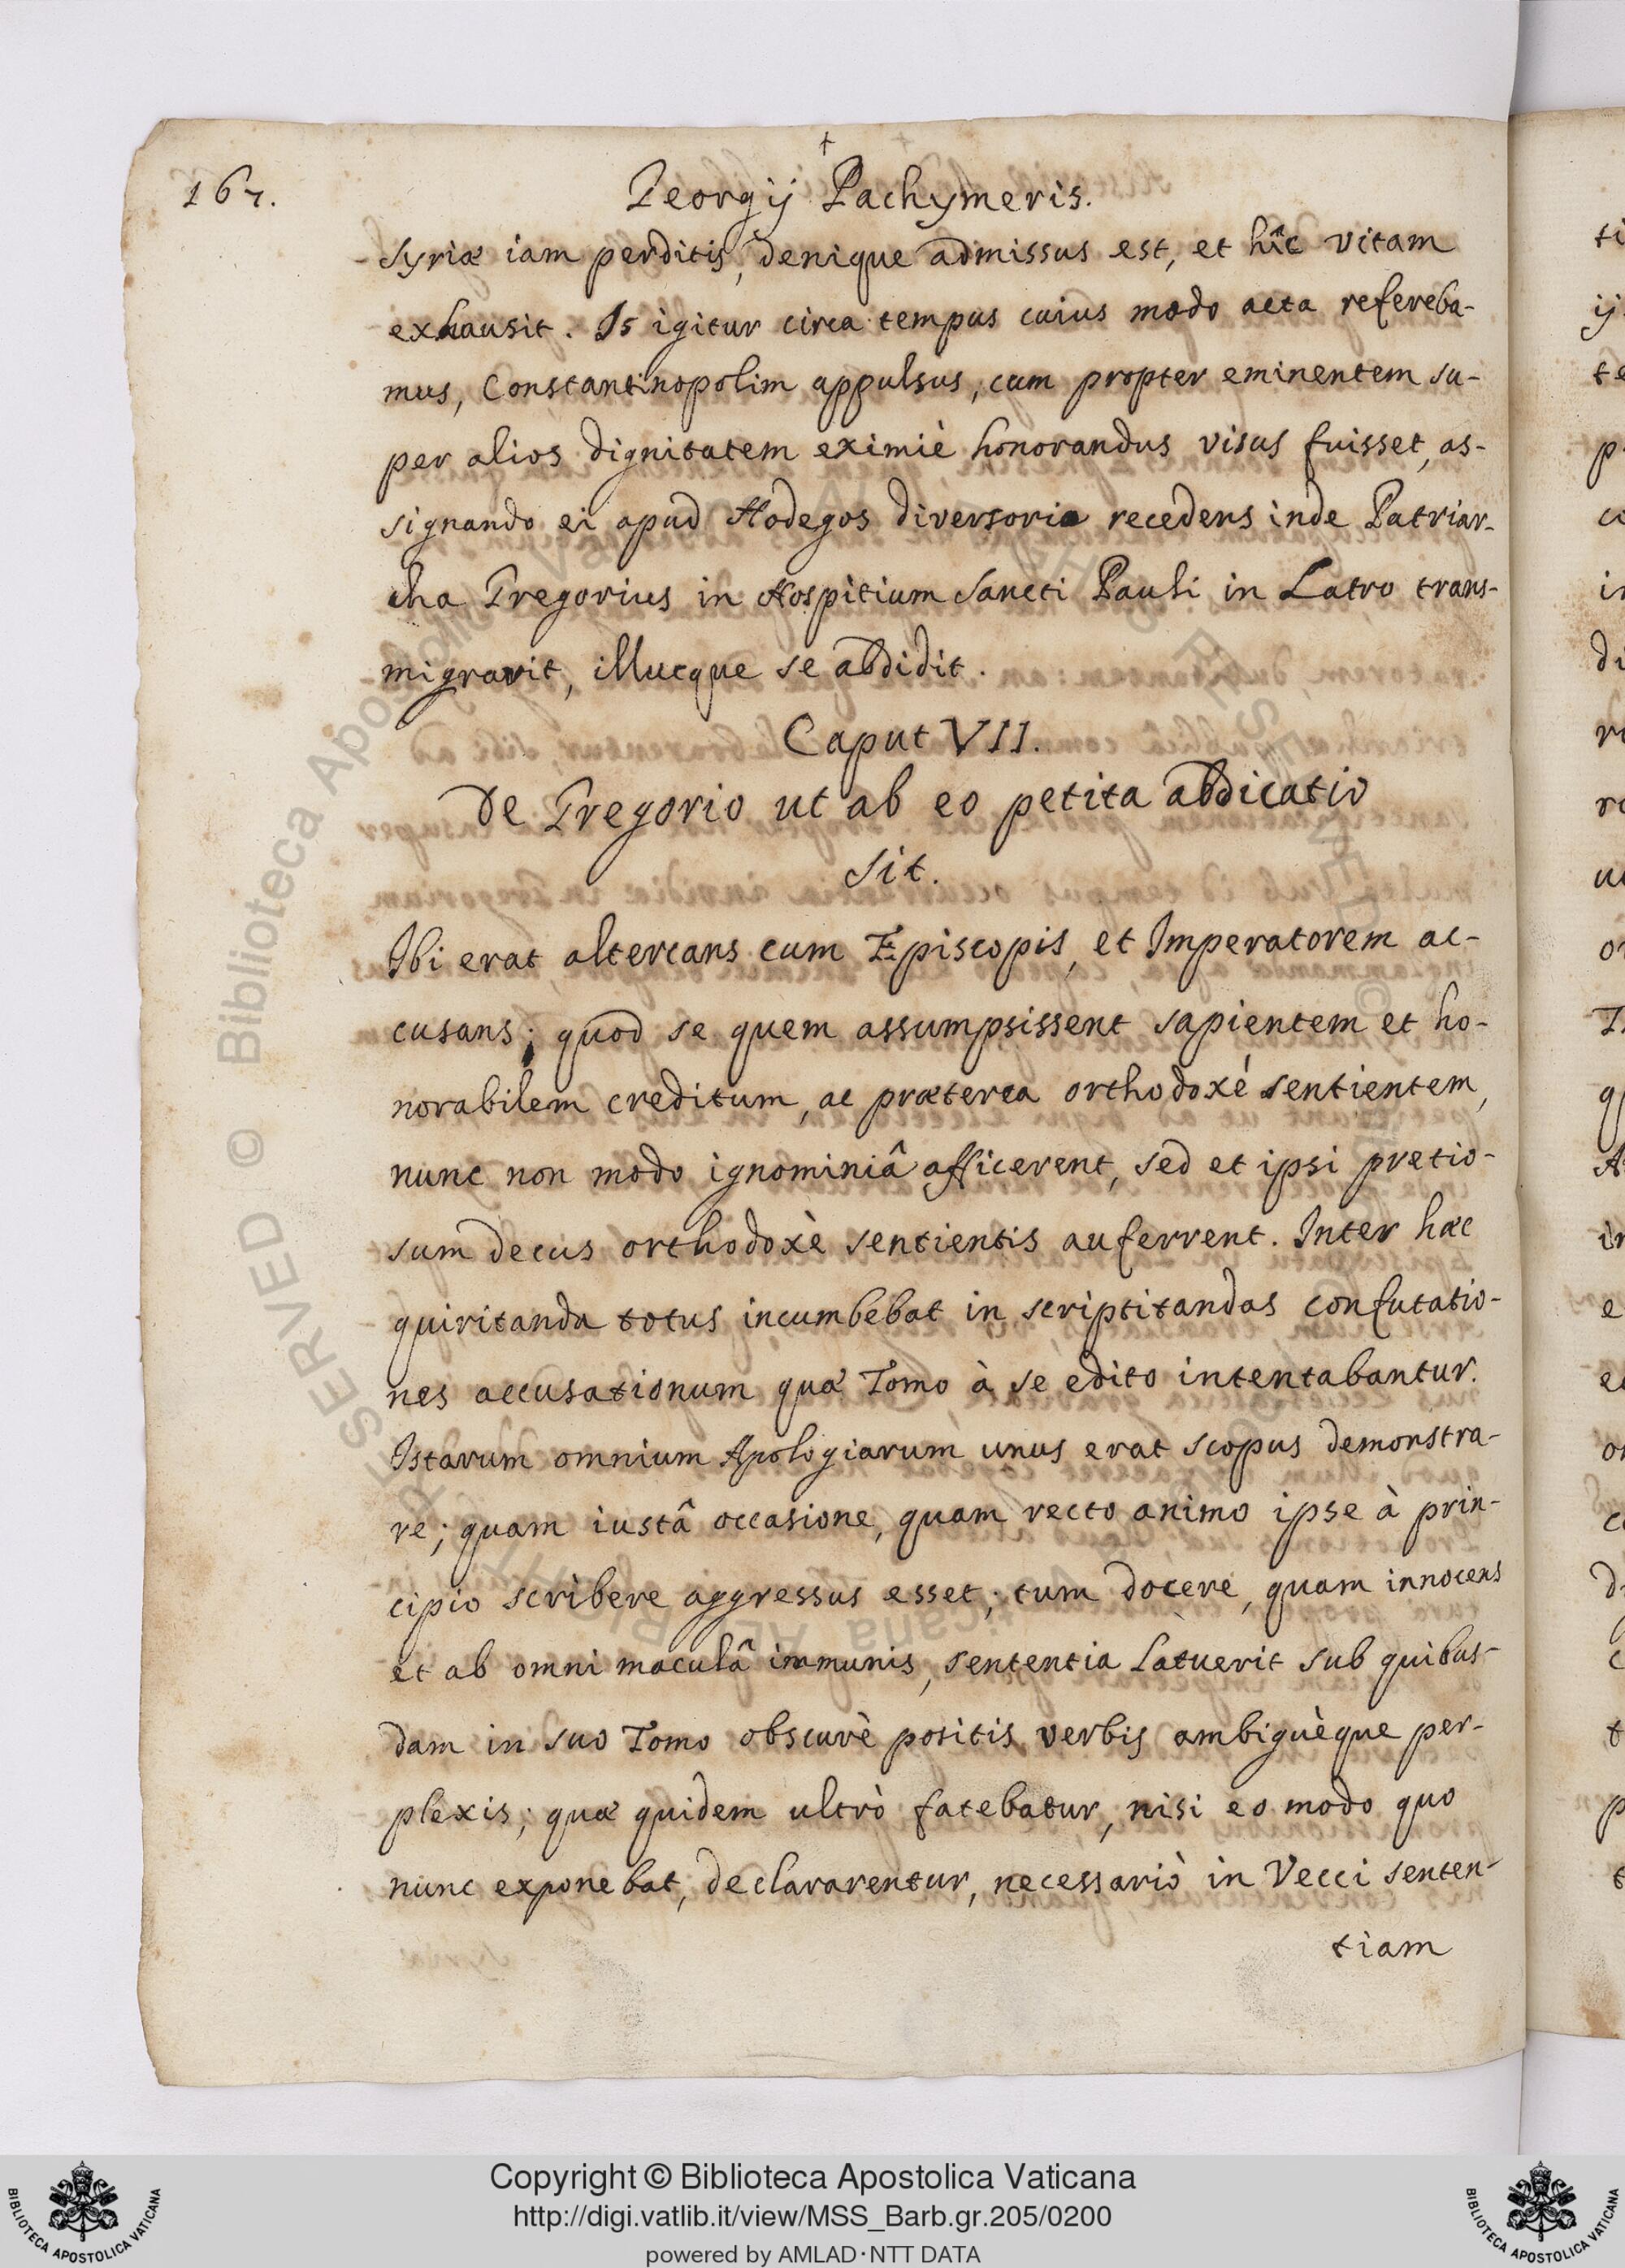 †
167. Georgij Pachymeris.
Syriæ iam perditis, denique admissus est, et hîc vitam
exhausit. Is igitur circa tempus cuius modo acta refereba-
mus, Constantinopolim appulsus, cum propter eminentem su-
per alios dignitatem eximiè honorandus visus fuisset, as-
signando ei apud Hodegos diversorio recedens inde Patriar-
cha Gregorius in Hospitium Sancti Pauli in Latro trans-
migravit, illucque se abdidit.
Caput VII.
De Gregorio ut ab eo petita abdicatio
sit.
Ibi erat altercans cum Episcopis, et Imperatorem ac-
cusans; quod se quem assumpsissent sapientem et ho-
norabilem creditum, ac præterea orthodoxé sentientem,
nunc non modo ignominiâ afficerent, sed et ipsi pretio-
sum decus orthodoxè sentientis auferrent. Inter hæc
quiritanda totus incumbebat in scriptitandas confutatio-
nes accusationum quæ Tomo à se edito intentabantur.
Istarum omnium Apologiarum unus erat scopus demonstra-
re; quam iustâ occasione, quam recto animo ipse à prin-
cipio scribere aggressus esset; tum docere, quam innocens
et ab omni maculâ immunis, sententia latuerit sub quibus-
dam in suo Tomo obscurè positis verbis ambiguèque per-
plexis; quæ quidem ultrò fatebatur, nisi eo modo quo
nunc exponebat, declararentur, necessariò in Vecci senten-
tiam
Copyright © Biblioteca Apostolica Vaticana
http://digi.vatlib.it/view/MSS_Barb.gr.205/0200
powered by AMLAD·NTT DATA